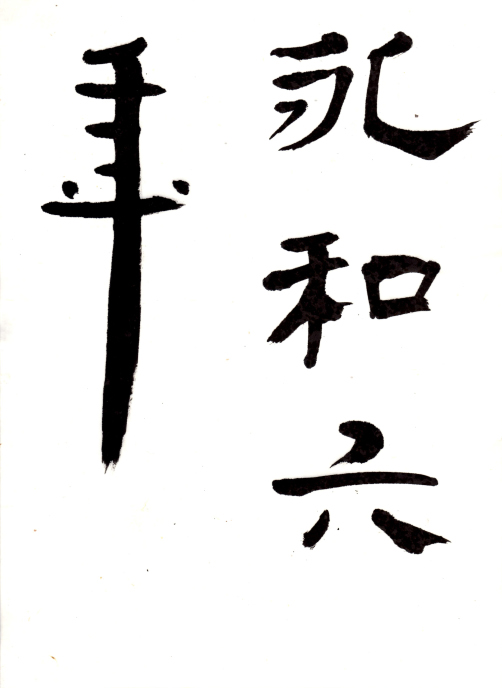 永和六
年